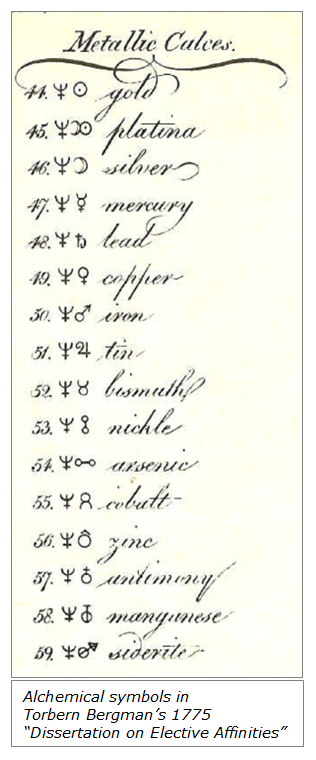 Metallic Calces.
44. ♆☉ gold
45. ♆☽☉ platina
46. ♆☽ silver
47. ♆☿ mercury
48. ♆♄ lead
49. ♆♀ copper
50. ♆♂ iron
51. ♆♃ tin
52. ♆♉ bismuth
53. ♆⚷ nickle
54. ♆⚯ arsenic
55. ♆ cobalt
56. ♆ zinc
57. ♆♁ antimony
58. ♆ manganese
59. ♆ siderite
Alchemical symbols in
Torbern Bergman’s 1775
“Dissertation on Elective Affinities”